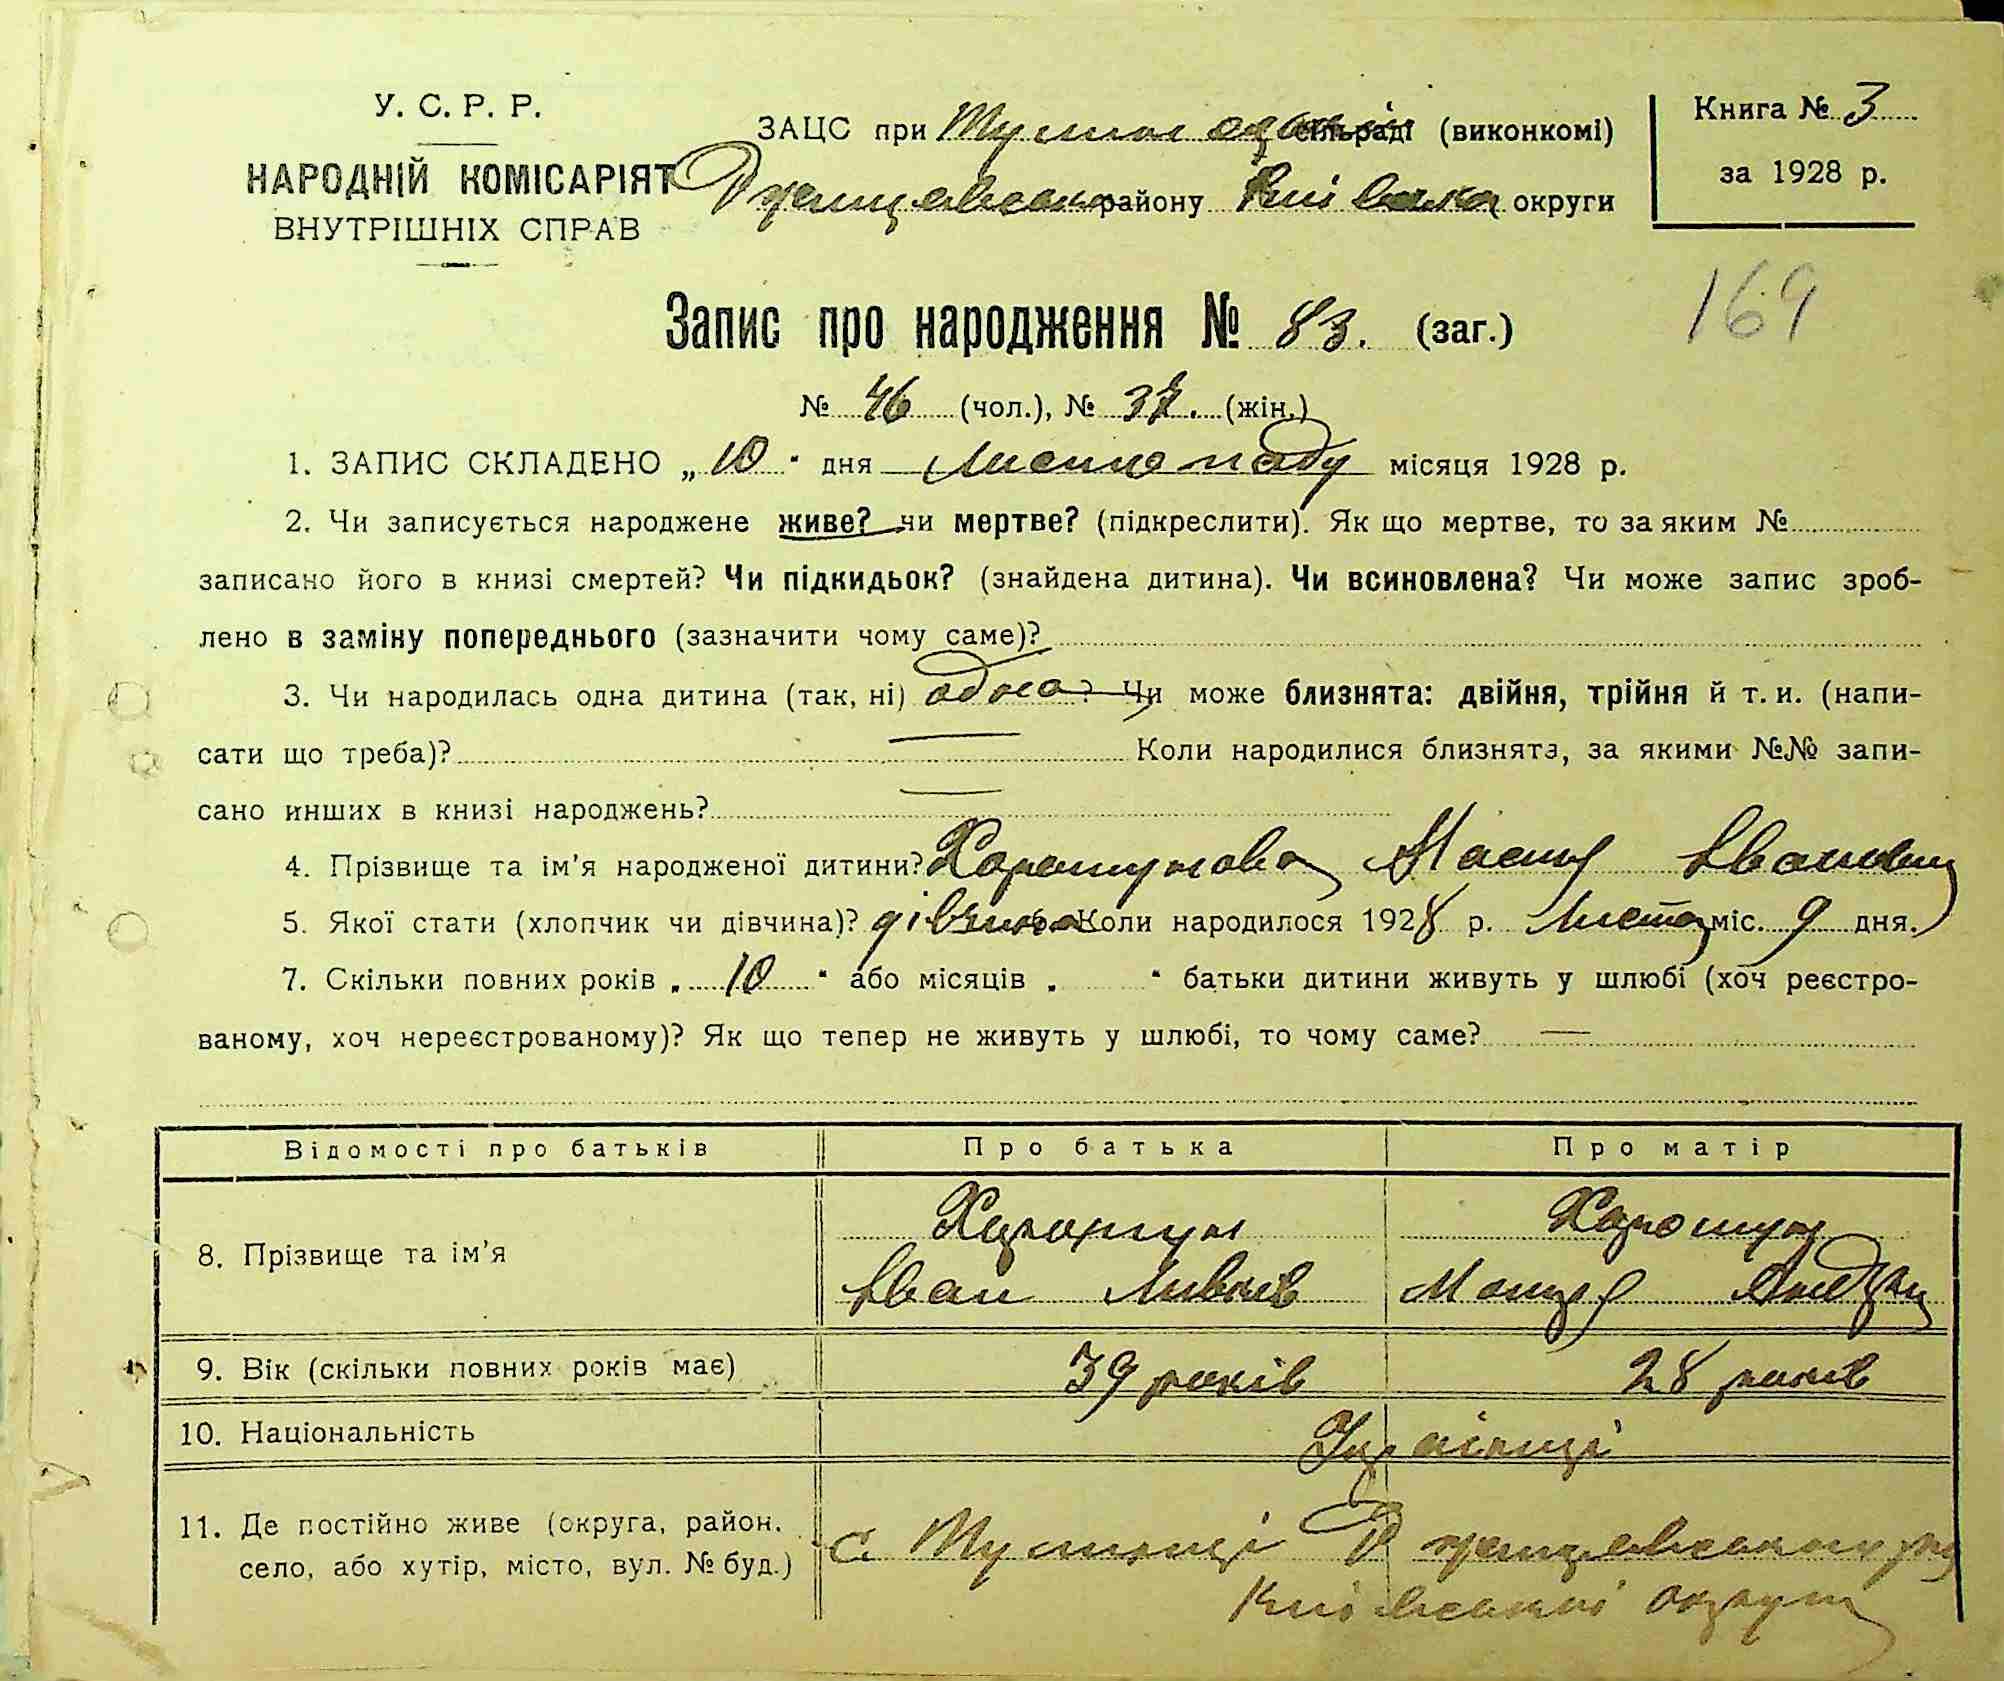 У. С. Р. Р.
НАРОДНІЙ КОМІСАРІЯТ
ВНУТРІШНІХ СПРАВ
ЗАЦС при сільраді (виконкомі)
району округи
Книга № 3
за 1928 р.
169
Запис про народження № 83. (заг.)
№ 46 (чол.), № 37. (жін.)
1. ЗАПИС СКЛАДЕНО „10" дня Листопаду місяця 1928 р.
2. Чи записується народжене живе? чи мертве? (підкреслити). Як що мертве, то за яким №
записано його в книзі смертей? Чи підкидьок? (знайдена дитина). Чи всиновлена? Чи може запис зроб-
лено в заміну попереднього (зазначити чому саме)?
3. Чи народилась одна дитина (так, ні) одна? Чи може близнята: двійня, трійня й т. и. (напи-
сати що треба)? — Коли народилися близнята, за якими №№ запи-
сано инших в книзі народжень? —
4. Прізвище та ім'я народженої дитини?
5. Якої стати (хлопчик чи дівчина)? дівчина Коли народилося 1928 р. Листоп міс. 9 дня.
7. Скільки повних років „10" або місяців „ " батьки дитини живуть у шлюбі (хоч реєстро-
ваному, хоч нереєстрованому)? Як що тепер не живуть у шлюбі, то чому саме? —
Відомості про батьків Про батька Про матір
8. Прізвище та ім'я
Іван
9. Вік (скільки повних років має) 39 років 28 років
10. Національність Українці
11. Де постійно живе (округа, район,
село, або хутір, місто, вул. № буд.)
с.
Київської округи